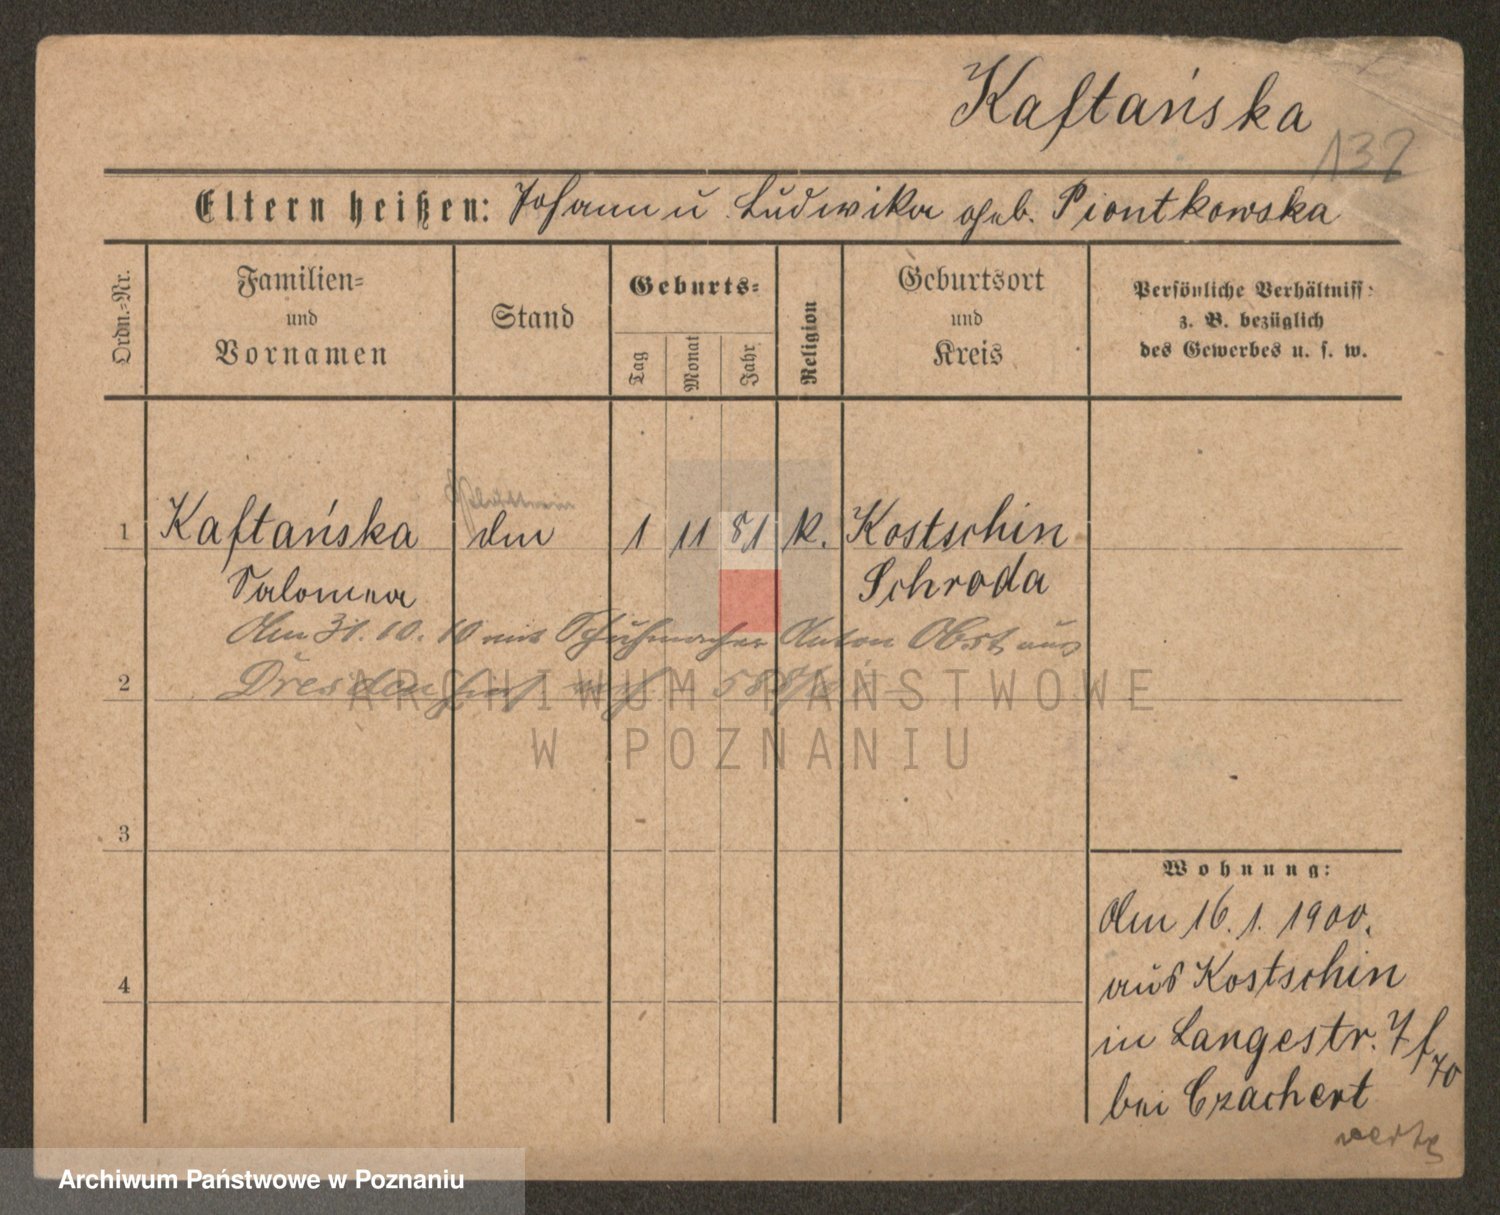 Kaftańska
132
Eltern heißen: Johann u Ludwika geb. Piontkowska
Ordn.-Nr.
Familien-
und
Vornamen
Stand
Geburts-
Tag
Monat
Jahr
Religion
Geburtsort
und
Kreis
Persönliche Verhältniss:
z. B. bezüglich
des Gewerbes u. s. w.
1 Kaftańska 1 11 81 k. Kostschin
Salomea Schroda
Am 31. 10. 10 mit Schuhmacher Anton Obst aus
2 Dresden
ARCHIWUM PAŃSTWOWE
W POZNANIU
3
Wohnung:
Am 16. 1. 1900.
aus Kostschin
4
in Langestr. 7
70
bei Czachert
Archiwum Państwowe w Poznaniu